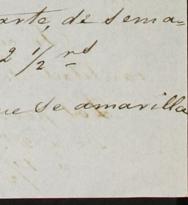 arte, de sema=
2 1/2 rs
ue se amarilla